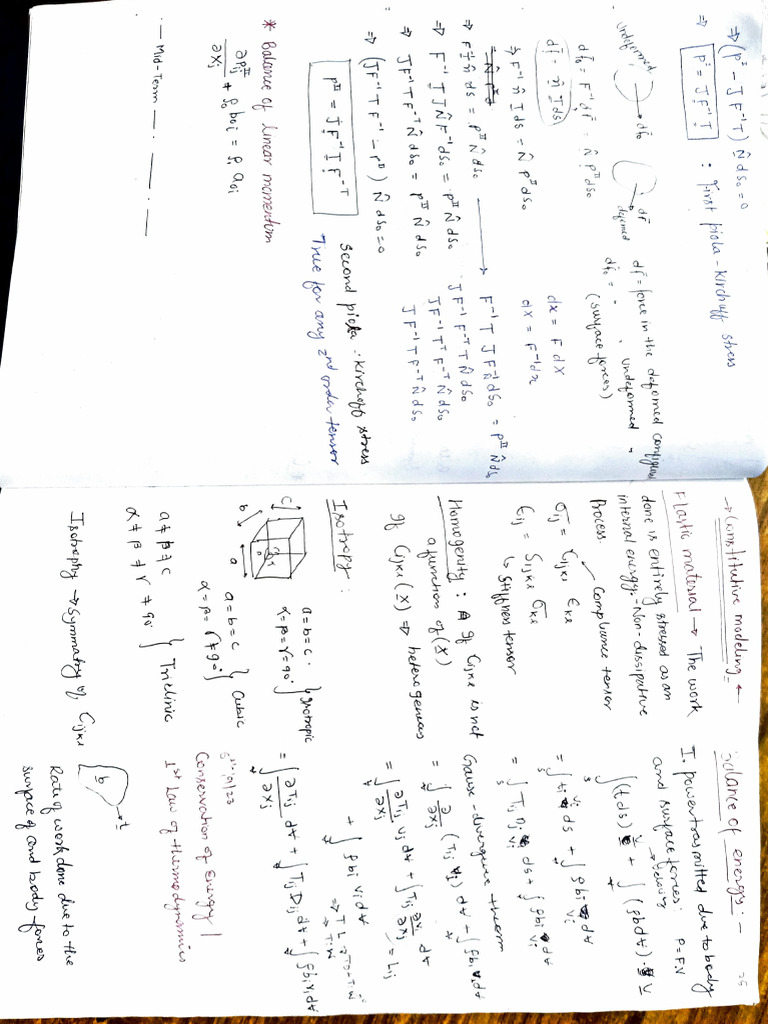 ⇒ (Pᴵ - J F⁻¹ T) N̂ dS₀ = 0
⇒ Pᴵ = J F⁻¹ T : First piola-kirchuff stress
undeformed
df₀
df
deformed
df = force in the deformed configuration
df₀ = " " undeformed "
(surface forces)
df₀ = F⁻¹ df = N̂ Pᴵᴵ dS₀
df = n̂ T ds
dx = F dX
dX = F⁻¹ dx
⇒ F⁻¹ n̂ T ds = N̂ Pᴵᴵ dS₀
= N̂ Pᴵᴵ
⇒ F⁻¹ T n̂ ds = Pᴵᴵ N̂ dS₀ → F⁻¹ T J F⁻ᵀ N̂ dS₀ = Pᴵᴵ N̂ dS₀
⇒ F⁻¹ T J N̂ F⁻¹ dS₀ = Pᴵᴵ N̂ dS₀
J F⁻¹ F⁻ᵀ T N̂ dS₀
⇒ J F⁻¹ T F⁻ᵀ N̂ dS₀ = Pᴵᴵ N̂ dS₀
J F⁻¹ Tᵀ F⁻ᵀ N̂ dS₀
⇒ (J F⁻¹ T F⁻¹ - Pᴵᴵ) N̂ dS₀ = 0
J F⁻¹ T F⁻ᵀ N̂ dS₀
Pᴵᴵ = J F⁻¹ T F⁻ᵀ
Second piola-kirchoff stress
True for any 2nd order tensor
* Balance of linear momentum
∂Pᴵᴵij/∂Xj + ρ₀ b₀i = ρ₀ a₀i
— Mid-Term — · — · —
→ Constitutive modeling ←
Elastic material → The work
done is entirely stressed as an
internal energy. - Non-dissipative
Process
Compliance tensor
σij = Cijkl εkl
εij = Sijkl σkl
↳ stiffness tensor
Homogenity : If Cijkl is not
a function of (X)
If Cijkl(X) ⇒ heterogenous
Isotropy :
c
b
a
a = b = c.
α = β = γ = 90° } Isotropic
a = b = c
α = β = γ ≠ 90° } Cubic
a ≠ b ≠ c
α ≠ β ≠ γ ≠ 90° } Triclinic
Isotrophy → Symmatry of Cijkl
25
Balance of energy: -
I. power trasmitted due to body
and surface forces: P = F.V
→ Velocity
∫s (t ds) v + ∫v (ρb dV) · v
= ∫s ti vi ds + ∫ ρbi vi dV
= ∫s Tij nj vi ds + ∫ ρbi vi dV
Gauss-divergence theorem
= ∫v ∂/∂xj (Tij vi) dV + ∫v ρbi vi dV
= ∫v ∂Tij/∂xj vi dV + ∫ Tij ∂vi/∂xj dV
= Lij
+ ∫ ρbi vi dV
= ∫v ∂Tij/∂xj dV + ∫v Tij Dij dV + ∫v ρbi vi dV
Conservation of Energy /
1st Law of thermodynamics
b
t
Rate of work done due to the
surface of and body forces